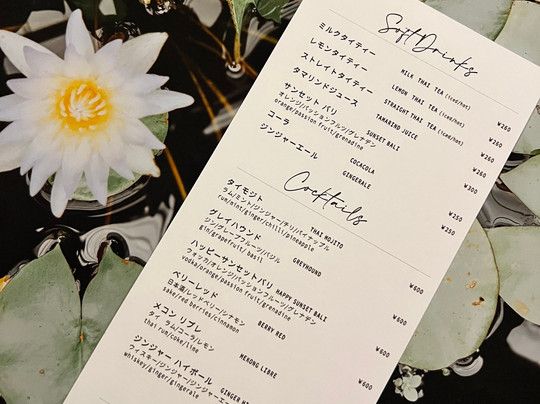 Soft Drinks
ミルクタイティー MILK THAI TEA (iced/hot) ¥260
レモンタイティー LEMON THAI TEA (iced/hot) ¥260
ストレイトタイティー STRAIGHT THAI TEA (iced/hot) ¥260
タマリンドジュース TAMARIND JUICE ¥260
サンセット バリ SUNSET BALI ¥300
オレンジ/パッションフルーツ/グレナデン
orange/passion fruit/grenadine
コーラ COCACOLA ¥250
ジンジャーエール GINGERALE ¥250
Cocktails
タイモジト THAI MOJITO ¥600
ラム/ミント/ジンジャー/チリ/パイナップル
rum/mint/ginger/chilli/pineapple
グレイハウンド GREYHOUND ¥600
ジン/グレープフルーツ/バジル
gin/grapefruit/ basil
ハッピーサンセットバリ HAPPY SUNSET BALI ¥600
ウォッカ/オレンジ/パッションフルーツ/グレナデン
vodka/orange/passion fruit/grenadine
ベリーレッド BERRY RED ¥600
日本酒/レッドベリー/シナモン
sake/red berries/cinnamon
メコン リブレ MEKONG LIBRE ¥600
タイ ラム/コーラ/レモン
thai rum/coke/lime
ジンジャー ハイボール GINGER
ウイスキー/ジンジャー/ジンジャーエール
whiskey/ginger/gingerale